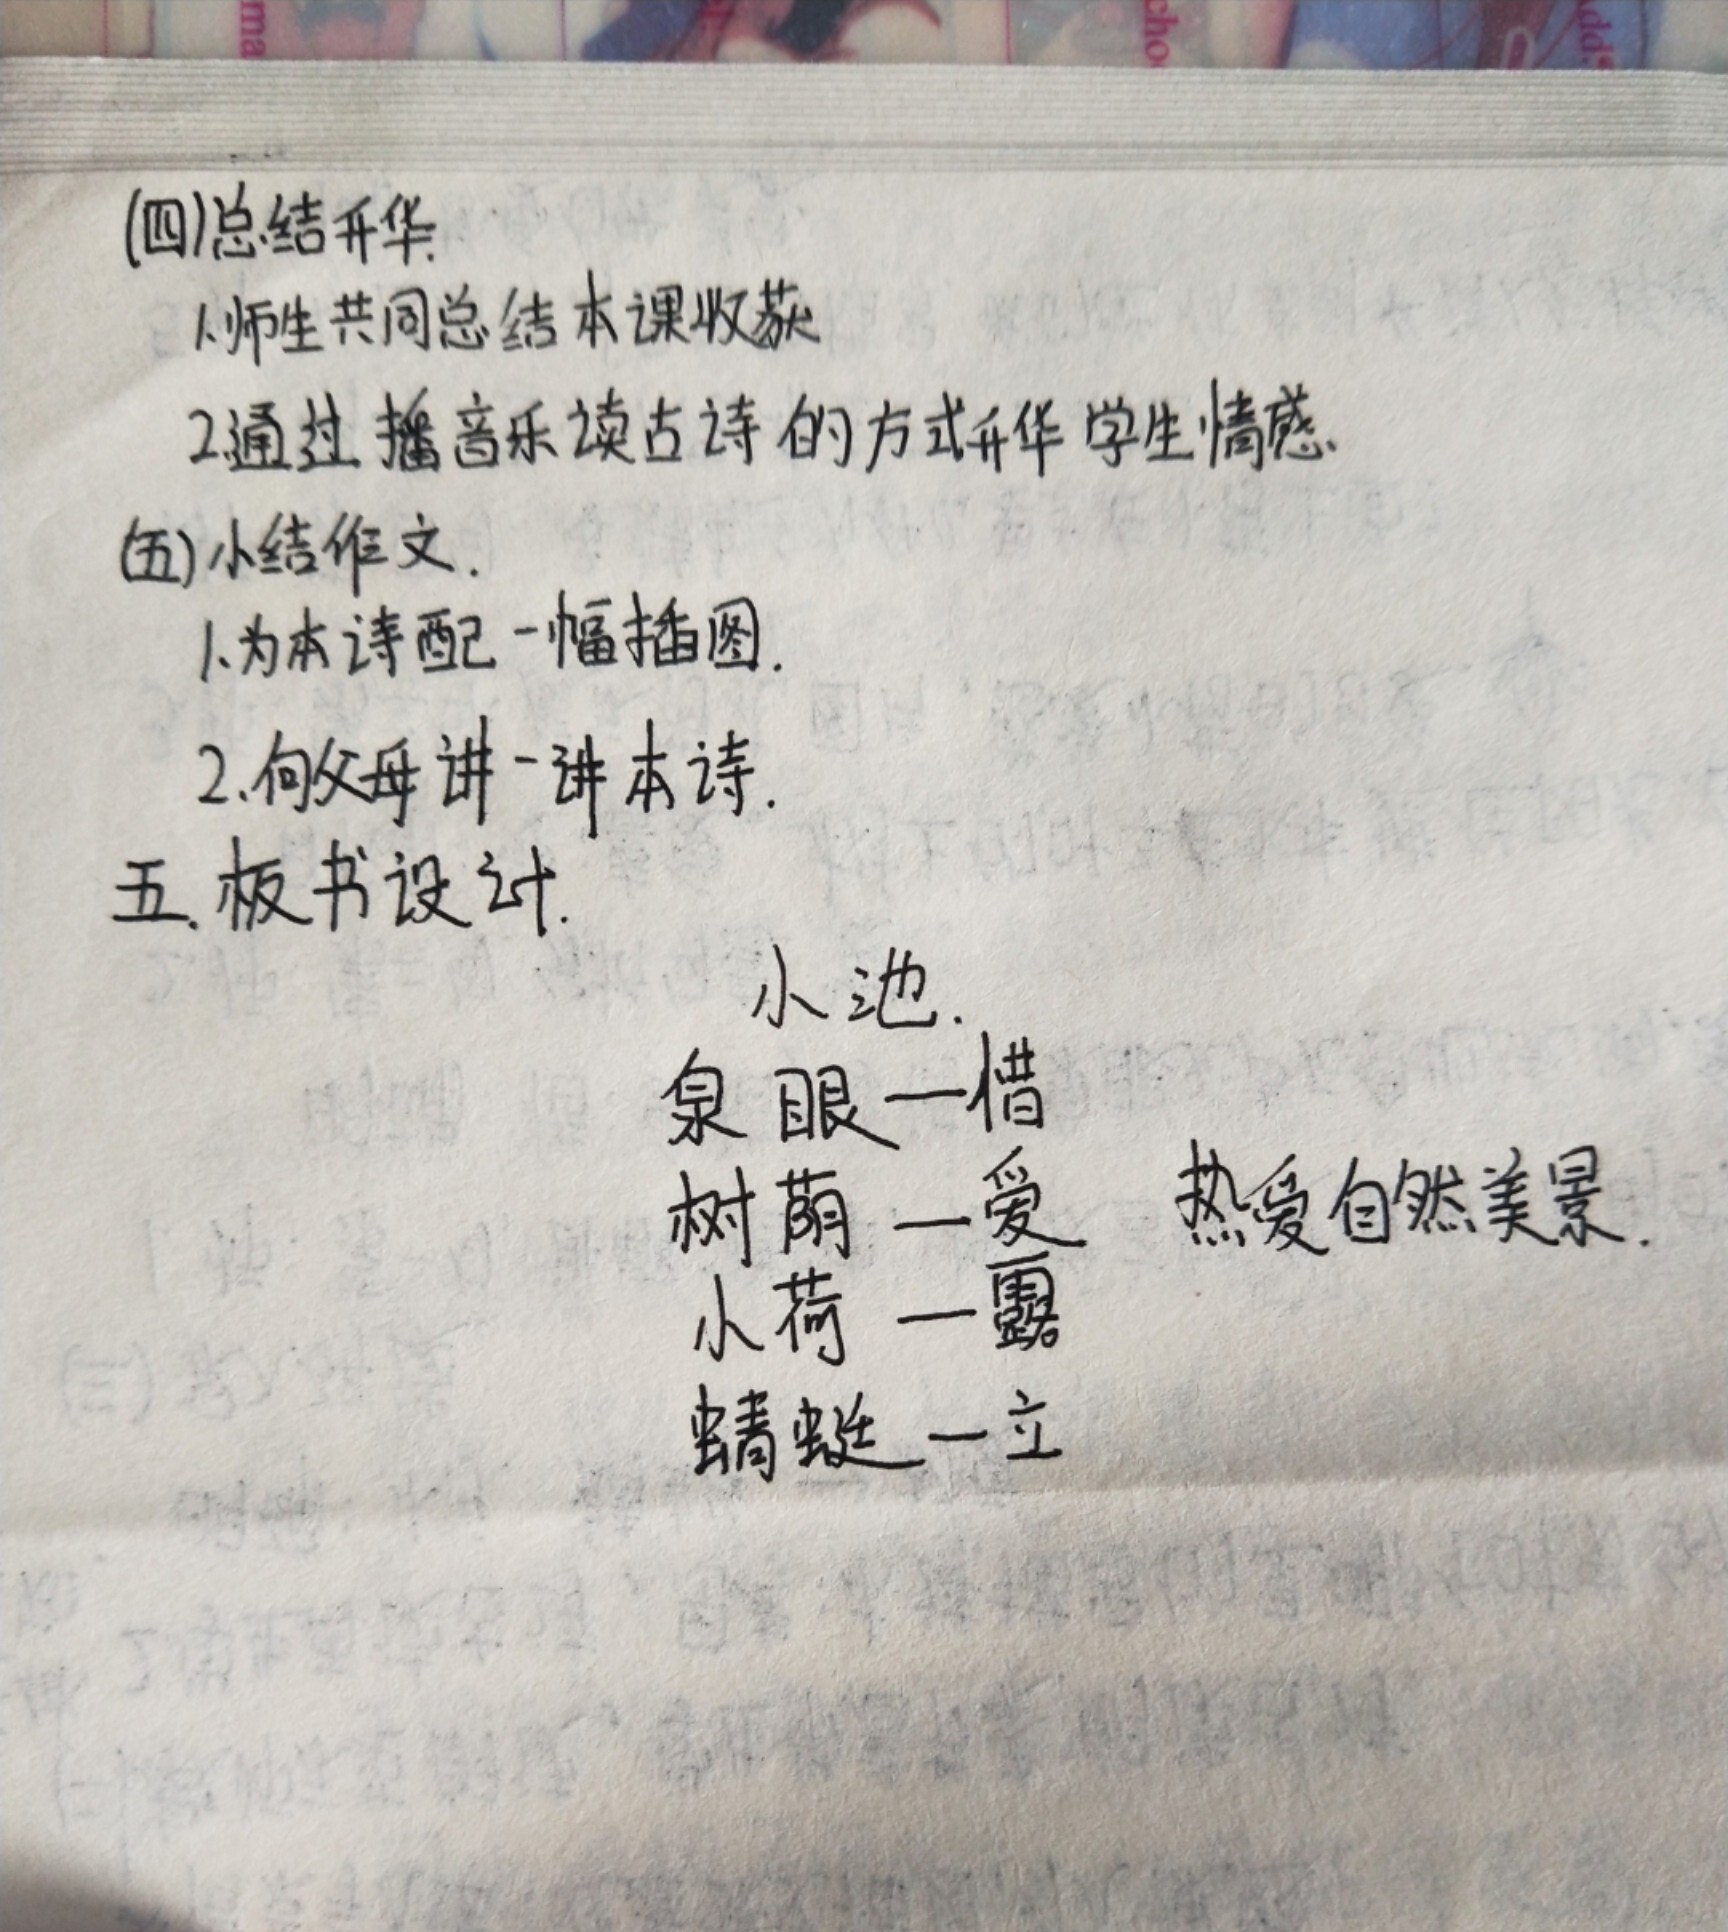 ma
cho
dd.
(四)总结升华.
1.师生共同总结本课收获
2.通过播音乐读古诗的方式升华学生情感.
(五)小结作文.
1.为本诗配一幅插图.
2.向父母讲一讲本诗.
五.板书设计.
小池.
泉眼—惜
树荫—爱
热爱自然美景.
小荷—露
蜻蜓—立